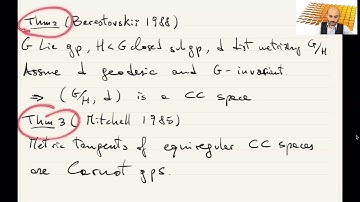 Thm 2 (Berestovskii 1988)
G Lie gp, H < G closed subgp, d dist metrizing G/H
Assume d geodesic and G-invariant.
⇒ (G/H, d) is a CC space
Thm 3 (Mitchell 1985)
Metric tangents of equiregular CC spaces
are Carnot gps.